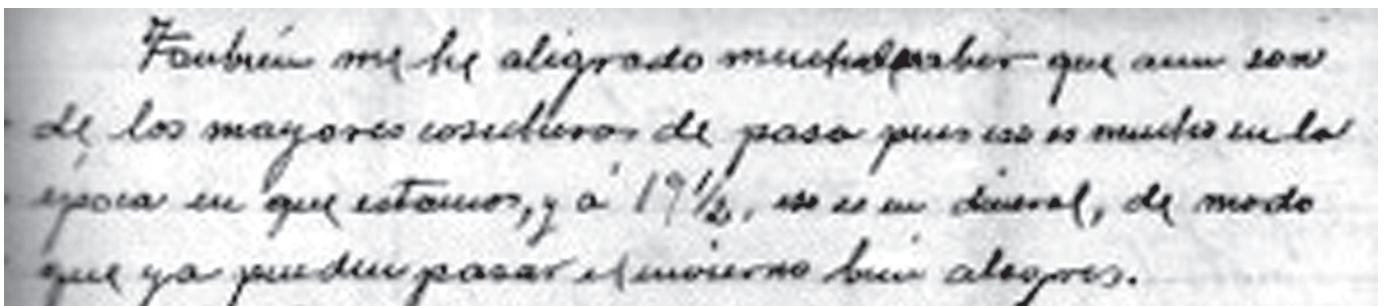 Tanbién me he aligrado mucho saber que aun son
de los mayores cosecheros de pasa pues eso es mucho en la
época en que estamos, y á 19 1/2, eso es un dineral, de modo
que ya pueden pasar el invierno bien alegres.